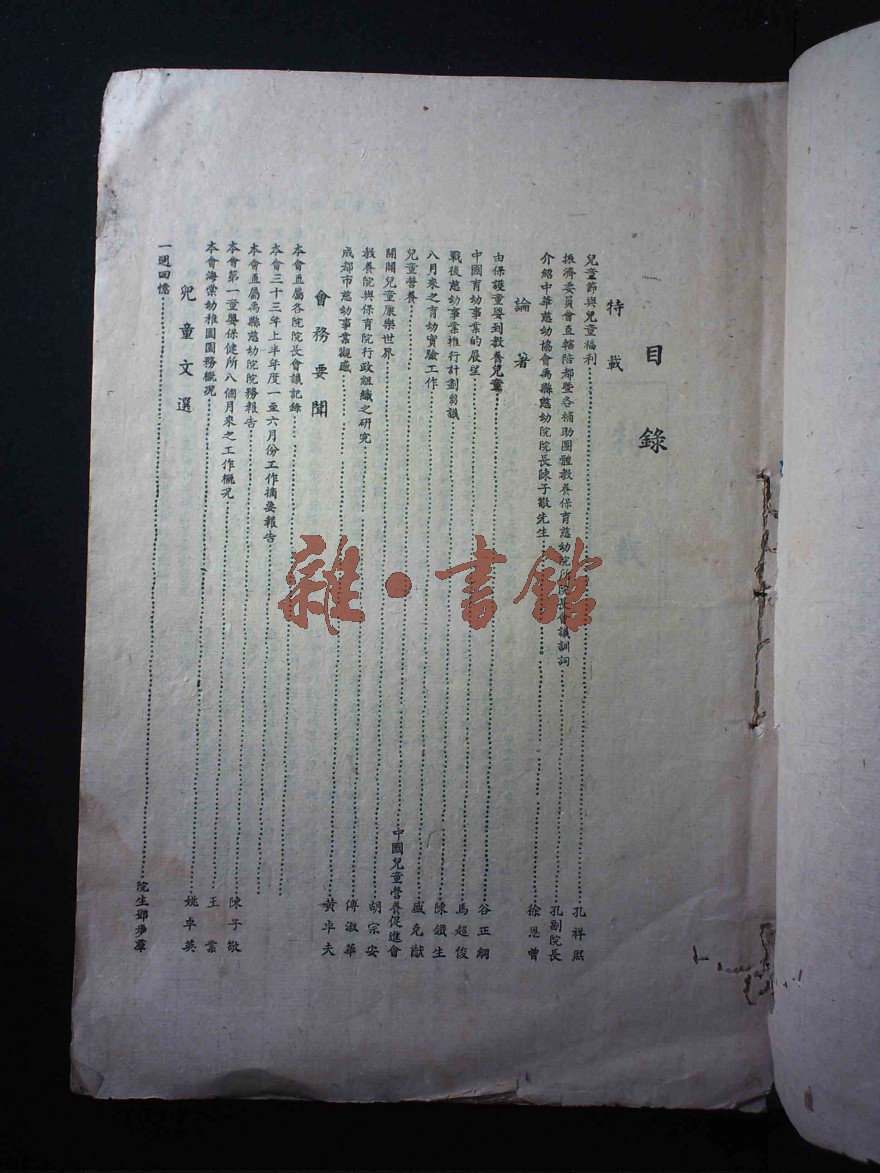 目錄
特載
兒童節與兒童福利 孔祥熙
振濟委員會直轄陪都暨各補助團體教養保育慈幼院所院長會議訓詞 孔副院長
介紹中華慈幼協會禹縣慈幼院院長陳子敬先生 徐恩曾
論著
由保護童嬰到教養兒童 谷正綱
中國育幼事業的展望 馬超俊
戰後慈幼事業推行計劃芻議 陳鐵生
八月來之育幼實驗工作 盛克猷
兒童營養 中國兒童營養促進會
開闢兒童康樂世界 胡宗安
教養院與保育院行政組織之研究 傅淑華
成都市慈幼事業觀感 黃卓夫
會務要聞
本會直屬各院院長會議記錄
本會三十三年上半年度一至六月份工作摘要報告
本會直屬禹縣慈幼院院務報告 陳子敬
本會第一童嬰保健所八個月來之工作概况 王業
本會海棠幼稚園園務概况 姚卓英
兒童文選
一週回憶 院生鄧步羣
雜·書館